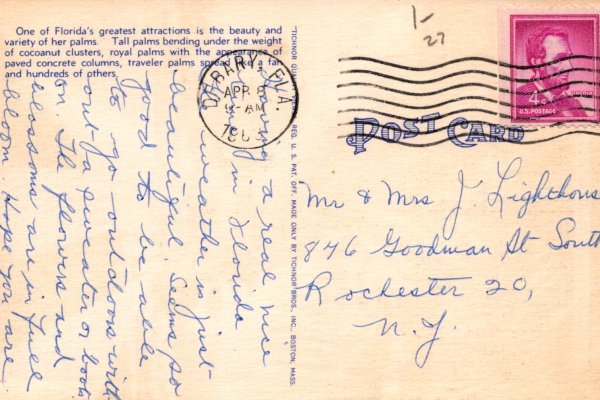 One of Florida's greatest attractions is the beauty and
variety of her palms. Tall palms bending under the weight
of cocoanut clusters, royal palms with the appearance of
paved concrete columns, traveler palms spread like a fan
and hundreds of others.
having a real nice
in Florida
weather is just
beautiful. Seems so
good to be able
to go outdoors with-
out a sweater or boots
on. The flowers and
blossoms are in full
bloom. Hope you are
"TICHNOR REG. U. S. PAT. OFF. MADE ONLY BY TICHNOR BROS., INC., BOSTON, MASS.
DEBARY, FLA
APR 8
AM
1963
1-
27
4¢
LINCOLN
U.S. POSTAGE
POST CARD
Mr & Mrs J. Lighthouse
876 Goodman St South
Rochester 20,
N.Y.